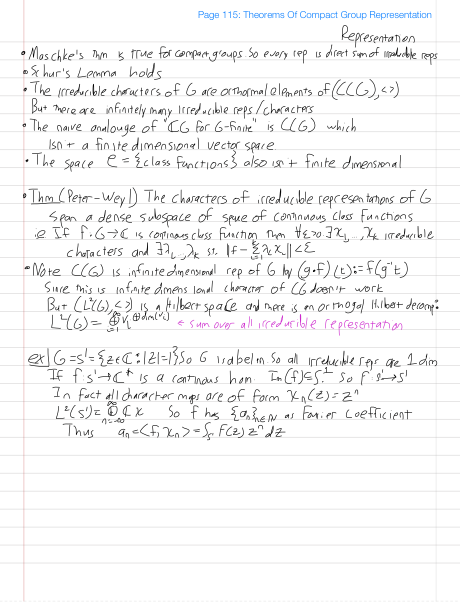 Page 115: Theorems Of Compact Group Representation
Representation
• Maschke's Thm is true for compact groups. So every rep is direct sum of irreducible reps
• Schur's Lemma holds
• The irreducible characters of G are orthormal elements of (C(G), <>)
But there are infinitely many irreducible reps/characters
• The naive analouge of "ℂG for G-finite" is C(G) which
Isn't a finite dimensional vector space
• The space C = {class functions} also isn't finite dimensional
• Thm (Peter-Weyl) The characters of irreducible representations of G
Span a dense subspace of space of continuous class functions
i.e If f: G→ℂ is continuous class function then ∀ε>0 ∃χ₁,...,χₖ irreducible
characters and ∃λ₁,...,λₖ st. ||f - Σᵢ₌₁ᵏ λᵢχᵢ|| < ε
• Note C(G) is infinite dimensional rep of G by (g·f)(t) := f(g⁻¹t)
Since this is infinite dimensional character of C(G) doesn't work
But (L²(G), <>) is a Hilbert space and there is an orthogal Hilbert decomp:
L²(G) = ⊕Vᵢ^⊕dim(Vᵢ) ← sum over all irreducible representation
ex| G = S¹ = {z∈ℂ: |z|=1} So G is abelian So all irreducible reps are 1dim
If f: S¹→ℂ* is a continous hom Im(f)⊆S¹ So f: S¹→S¹
In fact all character maps are of form χₙ(z) = zⁿ
L²(S¹) = ⊕ₙ₌₋∞^∞ ℂχₙ So f has {aₙ}ₙ∈ℕ as Fourier Coefficient
Thus aₙ = <f, χₙ> = ∫ F(z) zⁿ dz